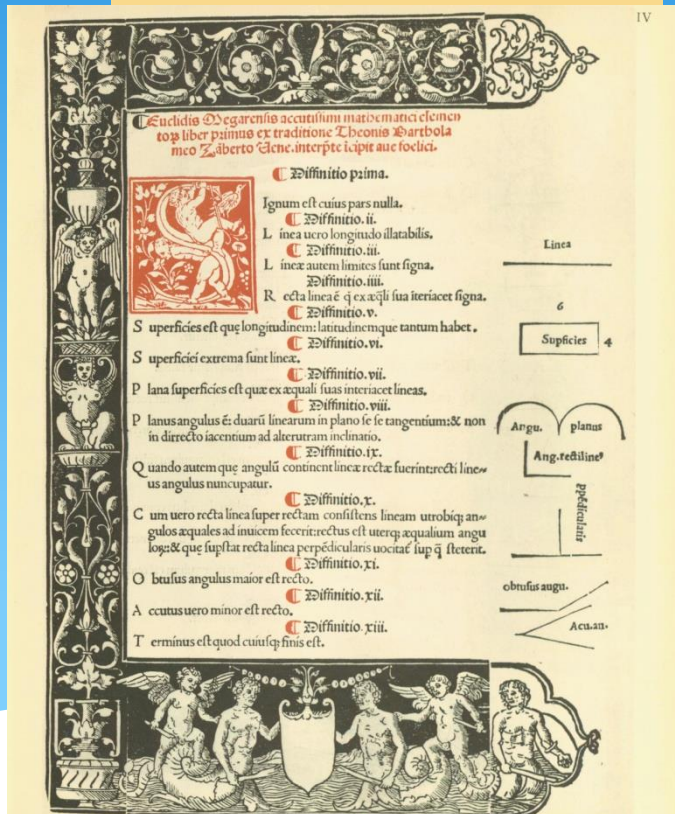 IV
Euclidis Megarensis accutissimi mathematici elemen
toꝝ liber primus ex traditione Theonis Barthola
meo Zāberto Uene. interp̄te īcipit aue foelici.
¶ Diffinitio prima.
Ignum est cuius pars nulla.
¶ Diffinitio.ii.
L inea uero longitudo illatabilis.
¶ Diffinitio.iii.
L ineæ autem limites sunt signa.
Diffinitio.iiii.
R ecta linea ē q̄ ex æq̄li sua iteriacet signa.
¶ Diffinitio.v.
S uperficies est quę longitudinem: latitudinemque tantum habet.
¶ Diffinitio.vi.
S uperficiei extrema sunt lineæ.
¶ Diffinitio.vii.
P lana superficies est quæ ex æquali suas interiacet lineas.
¶ Diffinitio.viii.
P lanus angulus ē: duarū linearum in plano se se tangentium: & non
in dirrecto iacentium ad alterutram inclinatio.
¶ Diffinitio.ix.
Q uando autem quę angulū continent lineæ rectæ fuerint: recti line~
us angulus nuncupatur.
¶ Diffinitio.x.
C um uero recta linea super rectam consistens lineam utrobiq; an~
gulos æquales ad inuicem fecerit: rectus est uterq; æqualium angu
loꝝ: & quę supstat recta linea perpēdicularis uocitat̄ sup q̄ steterit.
¶ Diffinitio.xi.
O btusus angulus maior est recto.
¶ Diffinitio.xii.
A ccutus uero minor est recto.
¶ Diffinitio.xiii.
T erminus est quod cuiusq; finis est.
Linea
6
Supficies 4
Angu. planus
Ang. rectilineꝰ
ppēdicularis
obtusus augu.
Acu. an.